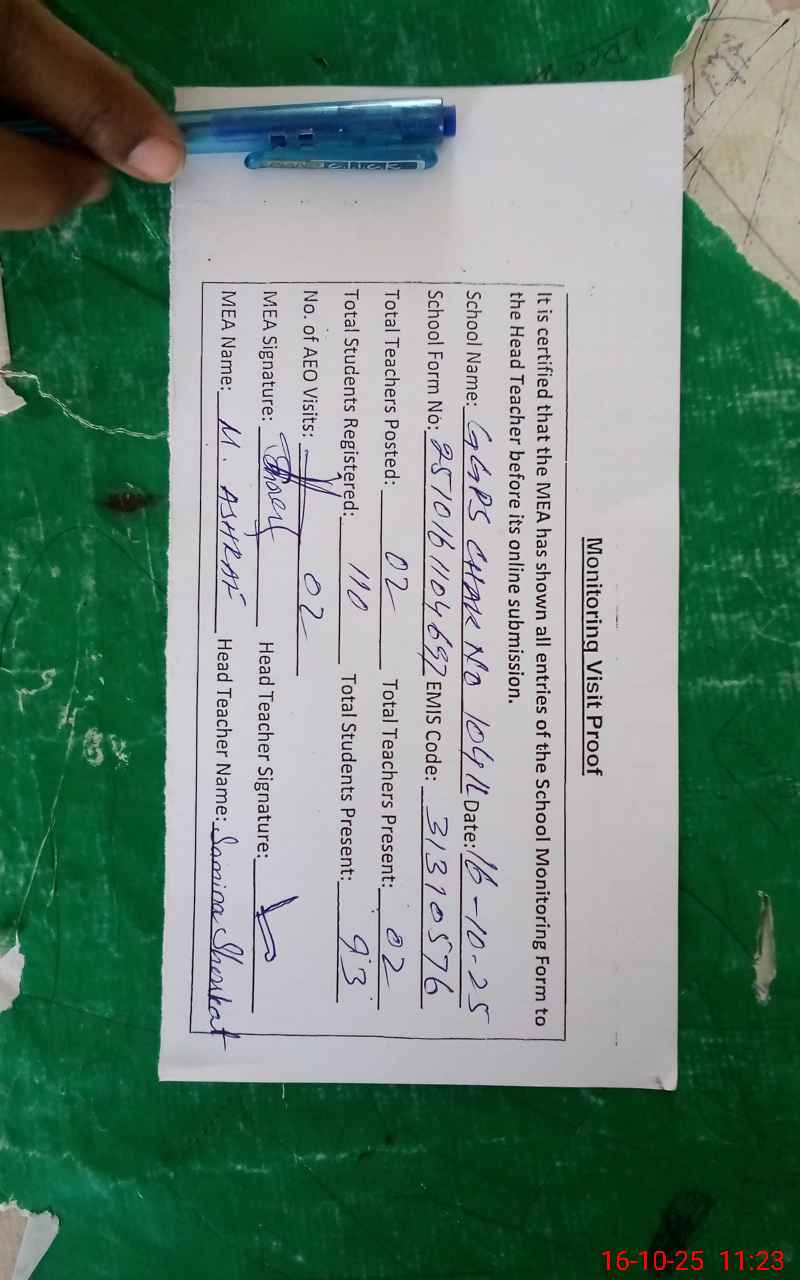 Monitoring Visit Proof
It is certified that the MEA has shown all entries of the School Monitoring Form to
the Head Teacher before its online submission.
School Name: GGPS CHAK NO 104/1L Date: 16-10-25
School Form No: 2510161104697 EMIS Code: 31310576
Total Teachers Posted: 02 Total Teachers Present: 02
Total Students Registered: 110 Total Students Present: 93
No. of AEO Visits: 02
MEA Signature: Head Teacher Signature:
MEA Name: M. ASHRAF Head Teacher Name: Samina Shoukat
click
16-10-25 11:23